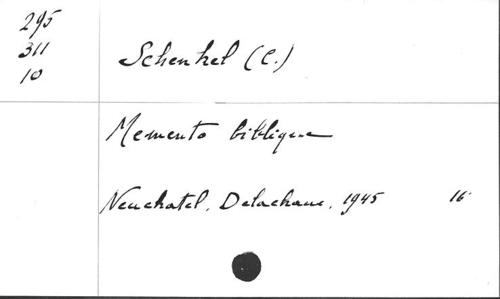 295
311
10
Schenkel (C.)
Memento biblique
Neuchatel, Delachaux, 1945 16